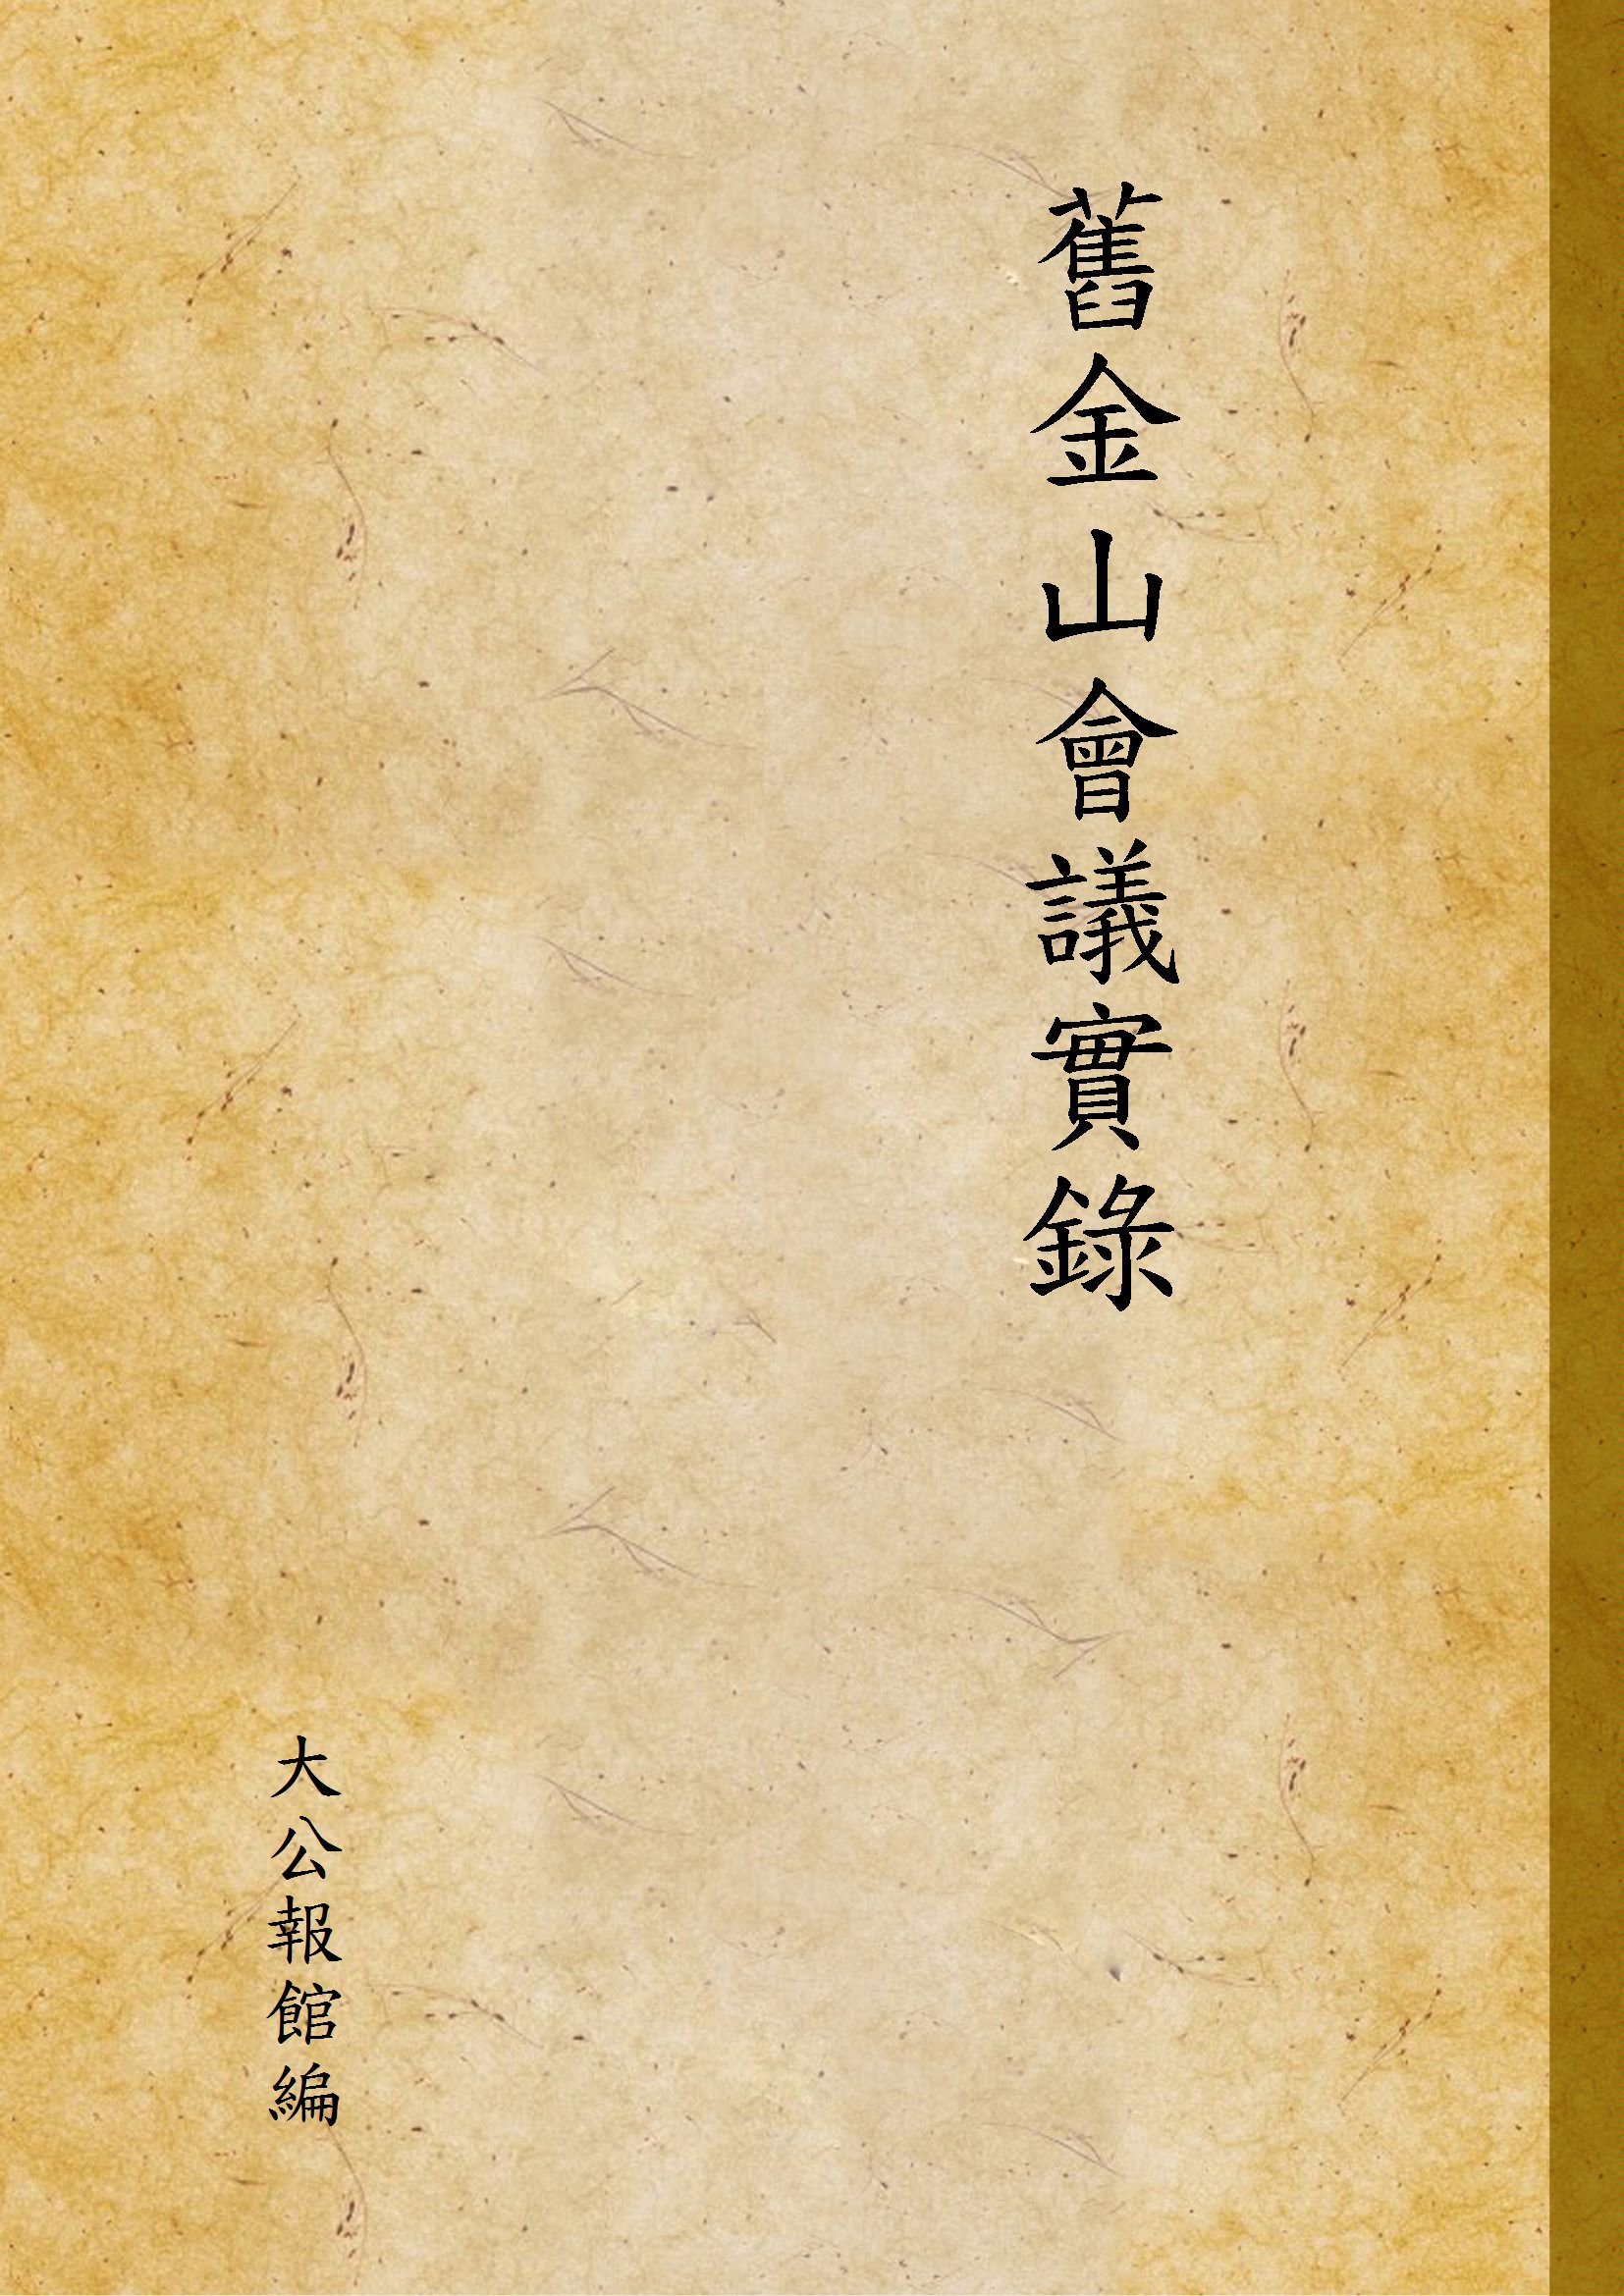 舊金山會議實錄
大公報館編